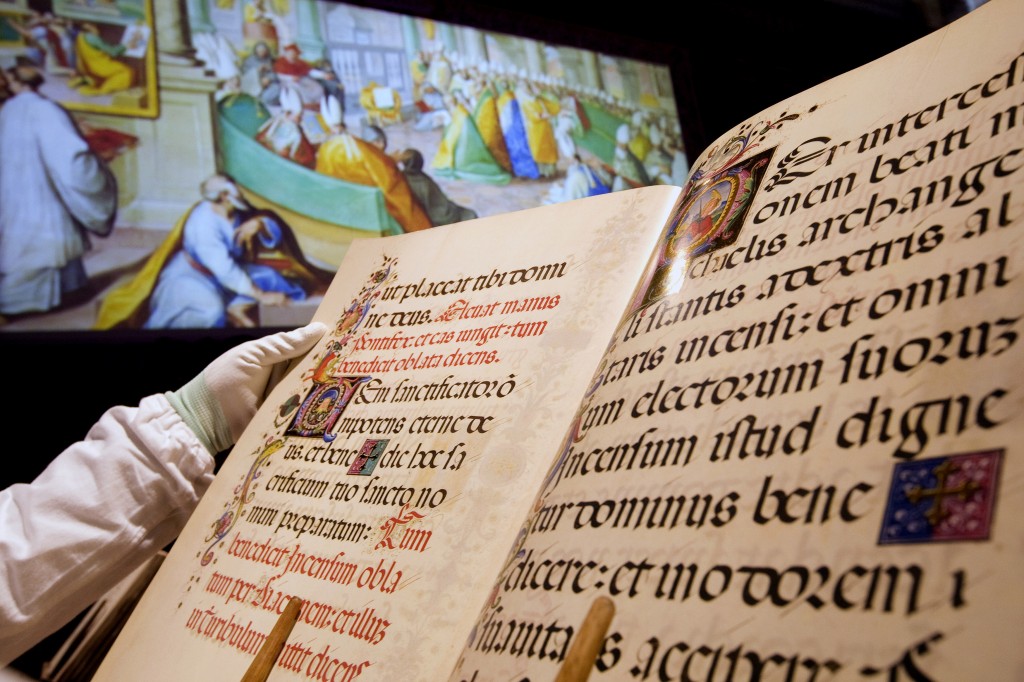 ut placeat tibi domi
ne deus. Acuat manus
pontifex et eas ungit: tum
benedicit oblata dicens.
Veni sanctificator õ
nnipotens eterne de
us. et bene dic hoc sa
crificium tuo sancto no
mini preparatum: Tum
benedicit Incensum obla
tum per Diaconem: et illud
in thuribulum mittit dicens
Per intercessi
onem beati m
ichaelis archange
li stantis a dextris al
taris incensi: et omni
um electorum suoruz
incensum istud digne
tur dominus bene
dicere: et in odorem
suavita s accipere